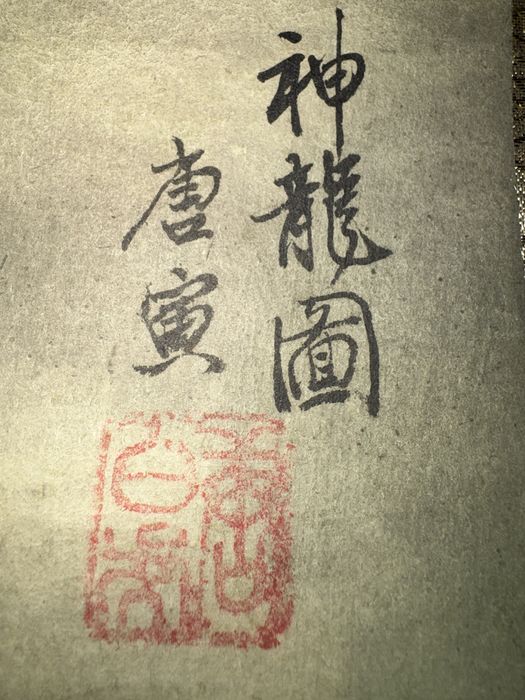 神龍圖
唐寅